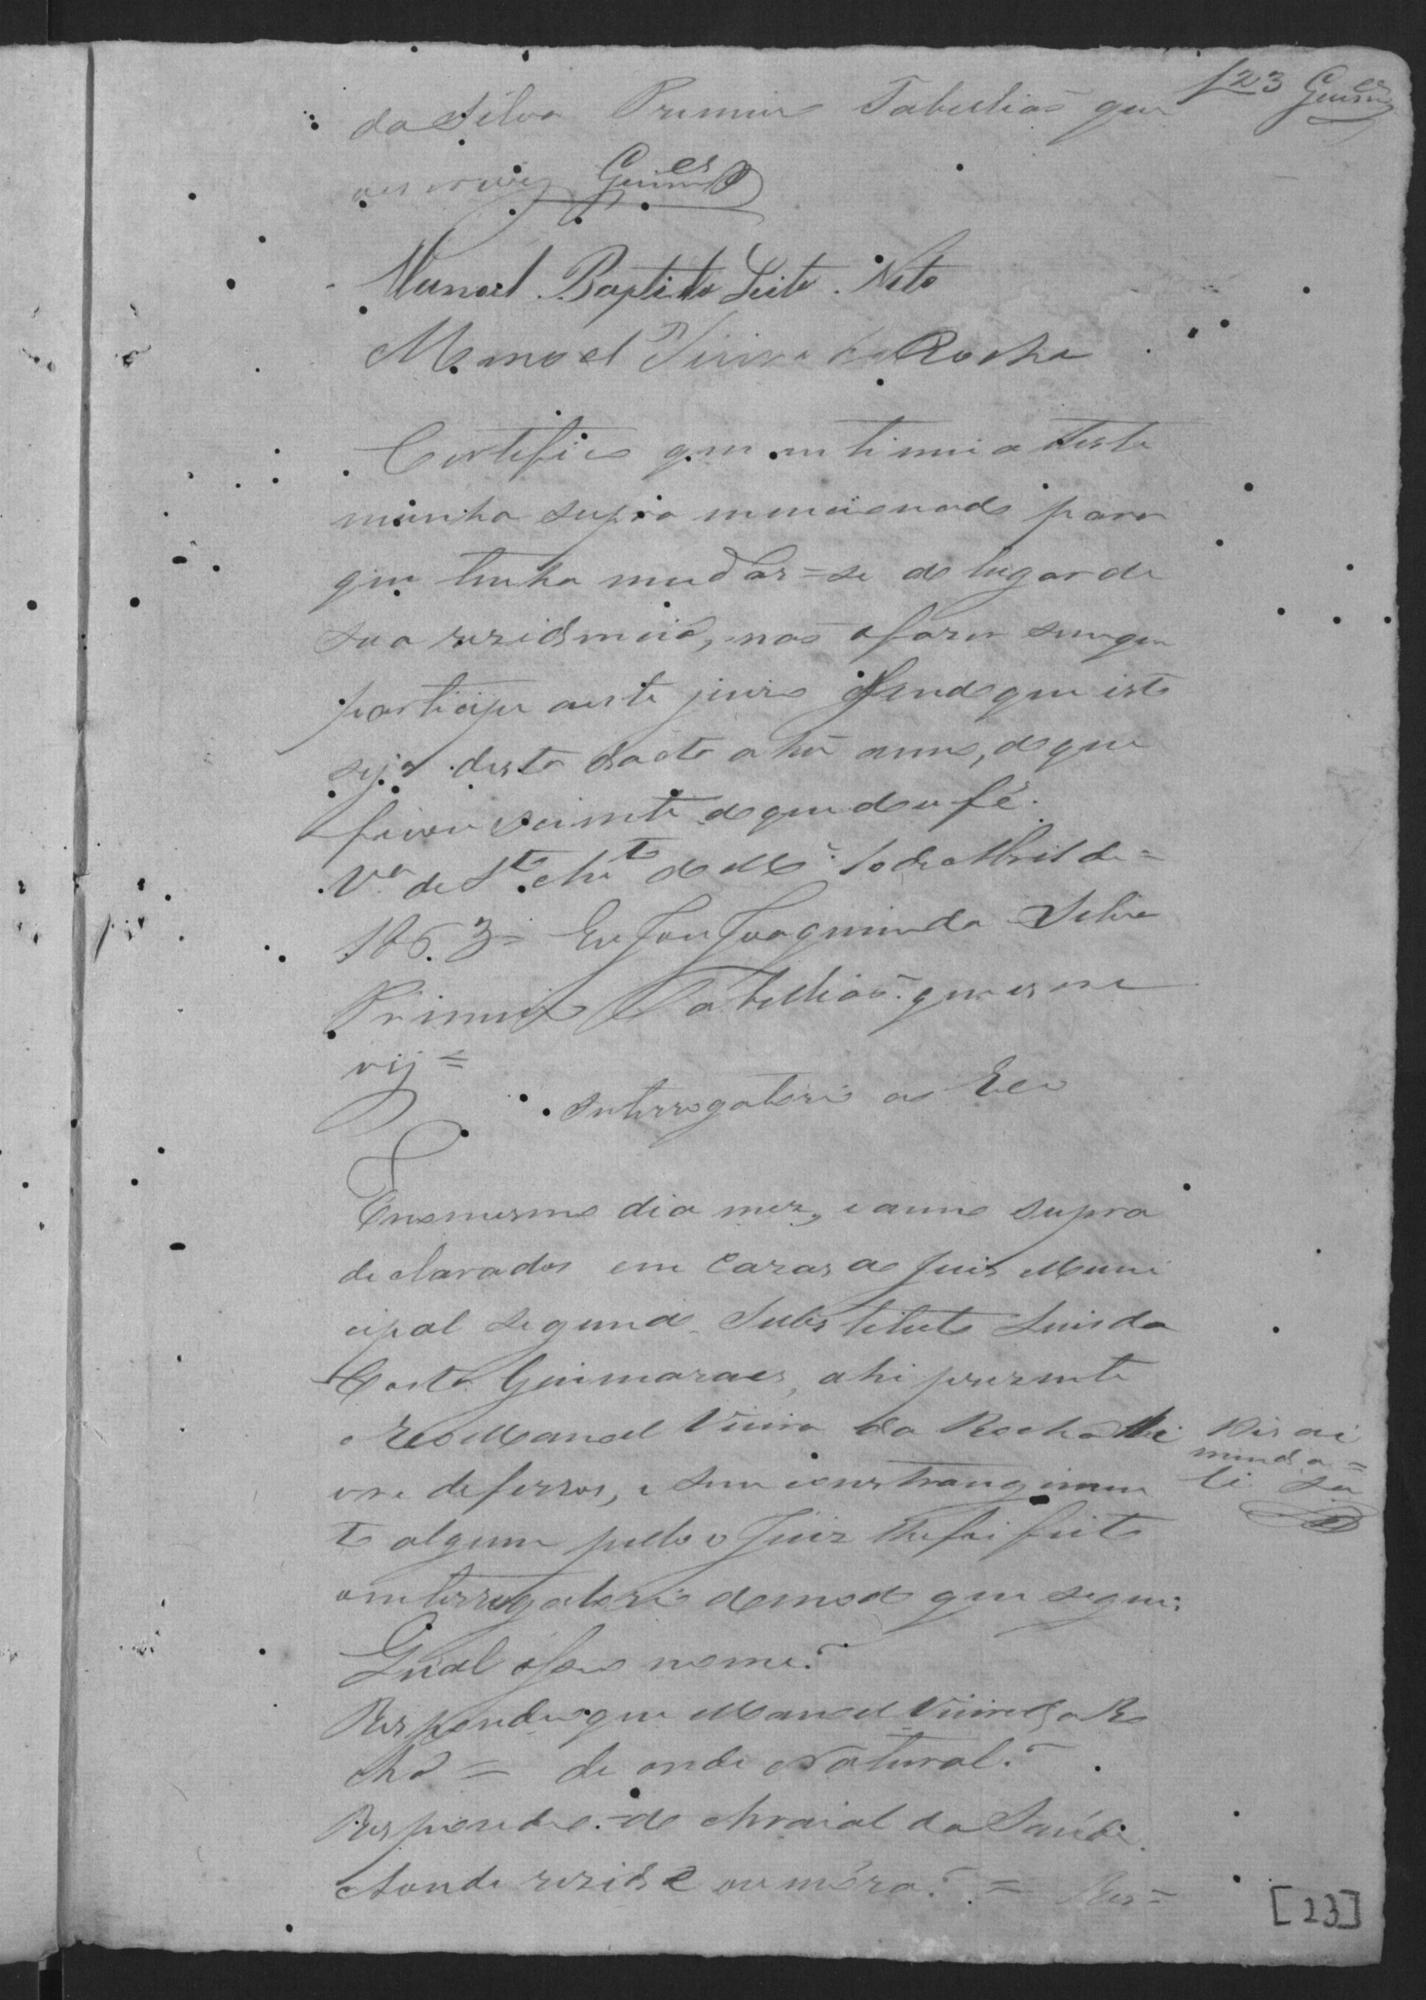 123 Guim.es
da Silva Primeiro Tabellião que
escrevy Guim.es
Manoel Baptista Leite Neto
Manoel Vieira da Rocha
Certifico que intimei a teste
munha supra mencionada para
que tenha mudar=se do lugar de
sua rezidencia, não o fazer sem que
participe a este juizo
seja desta dacta a hũ anno, do que
ficou sciente do que dou fé.
V.ª de S.ta do M.e 10 de Abril de=
1863= Eu José Joaquim da Silva
Primeiro Tabellião que escre
vij=
Interrogatorio ao Reo
E no mesmo dia mez, e anno supra
declarados em Cazas do Juis Muni
cipal Segundo Substituto Luis da
Costa Guimaraes, ahi prezente
o Reo Manoel Vieira da Rocha
vre de ferros, e sem constrangimen
to algum pello o Juiz lhe foi feito
o interrogatorio do modo que segue:
Qual o seu nome?
Respondeu que Manoel Vieira da Ro
cha= de onde Natural?
Respondeo=do Arraial da Saúde.
Aonde rezide ou móra? = Res=
[23]